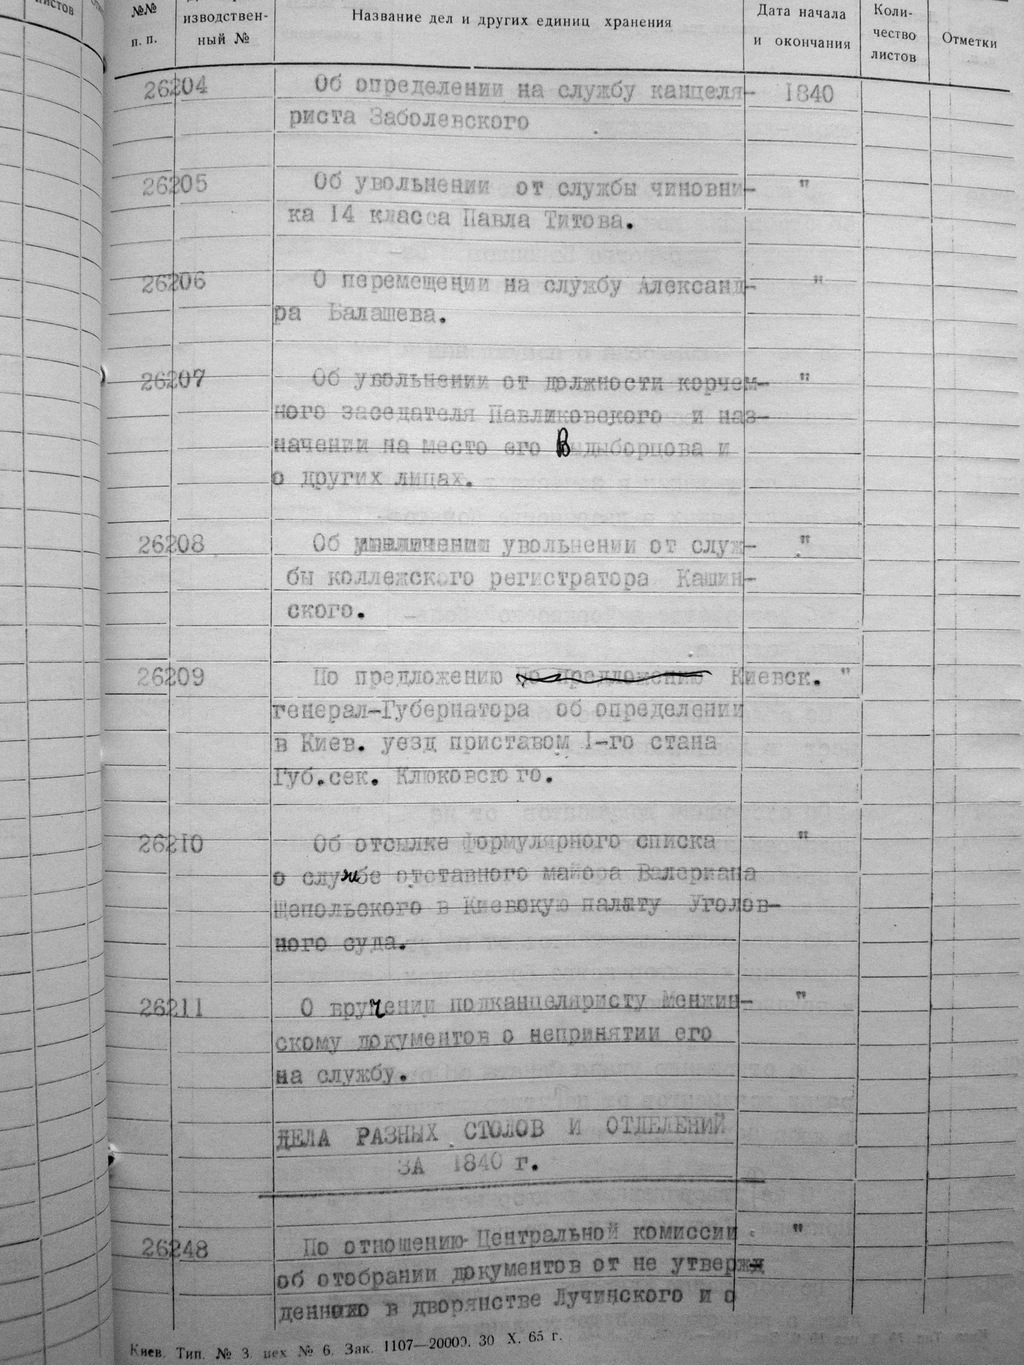 листов
№№
п. п.
изводствен-
ный №
Название дел и других единиц хранения
Дата начала
и окончания
Коли-
чество
листов
Отметки
26204 Об определении на службу канцеля- 1840
риста Заболевского
26205 Об увольнении от службы чиновни- "
ка 14 класса Павла Титова.
26206 О перемещении на службу Александ- "
ра Балашева.
26207 Об увольнении от должности корчем- "
ного заседателя Павликовского и наз-
начении на место его Выдыборцова и
о других лицах.
26208 Об увольнении от служ- "
бы коллежского регистратора Кашин-
ского.
26209 По предложению по предложению Киевск. "
генерал-Губернатора об определении
в Киев. уезд приставом I-го стана
Губ.сек. Клюковского.
26210 Об отсылке формулярного списка "
о службе отставного майора Валериана
Щепольского в Киевскую палату Уголов-
ного суда.
26211 О вручении подканцеляристу Менжин- "
скому документов о непринятии его
на службу.
ДЕЛА РАЗНЫХ СТОЛОВ И ОТДЕЛЕНИЙ
ЗА 1840 г.
26248 По отношению Центральной комиссии "
об отобрании документов от не утверж
денного в дворянстве Лучинского и о
Киев. Тип. № 3. цех № 6. Зак. 1107—20000. 30 X. 65 г.